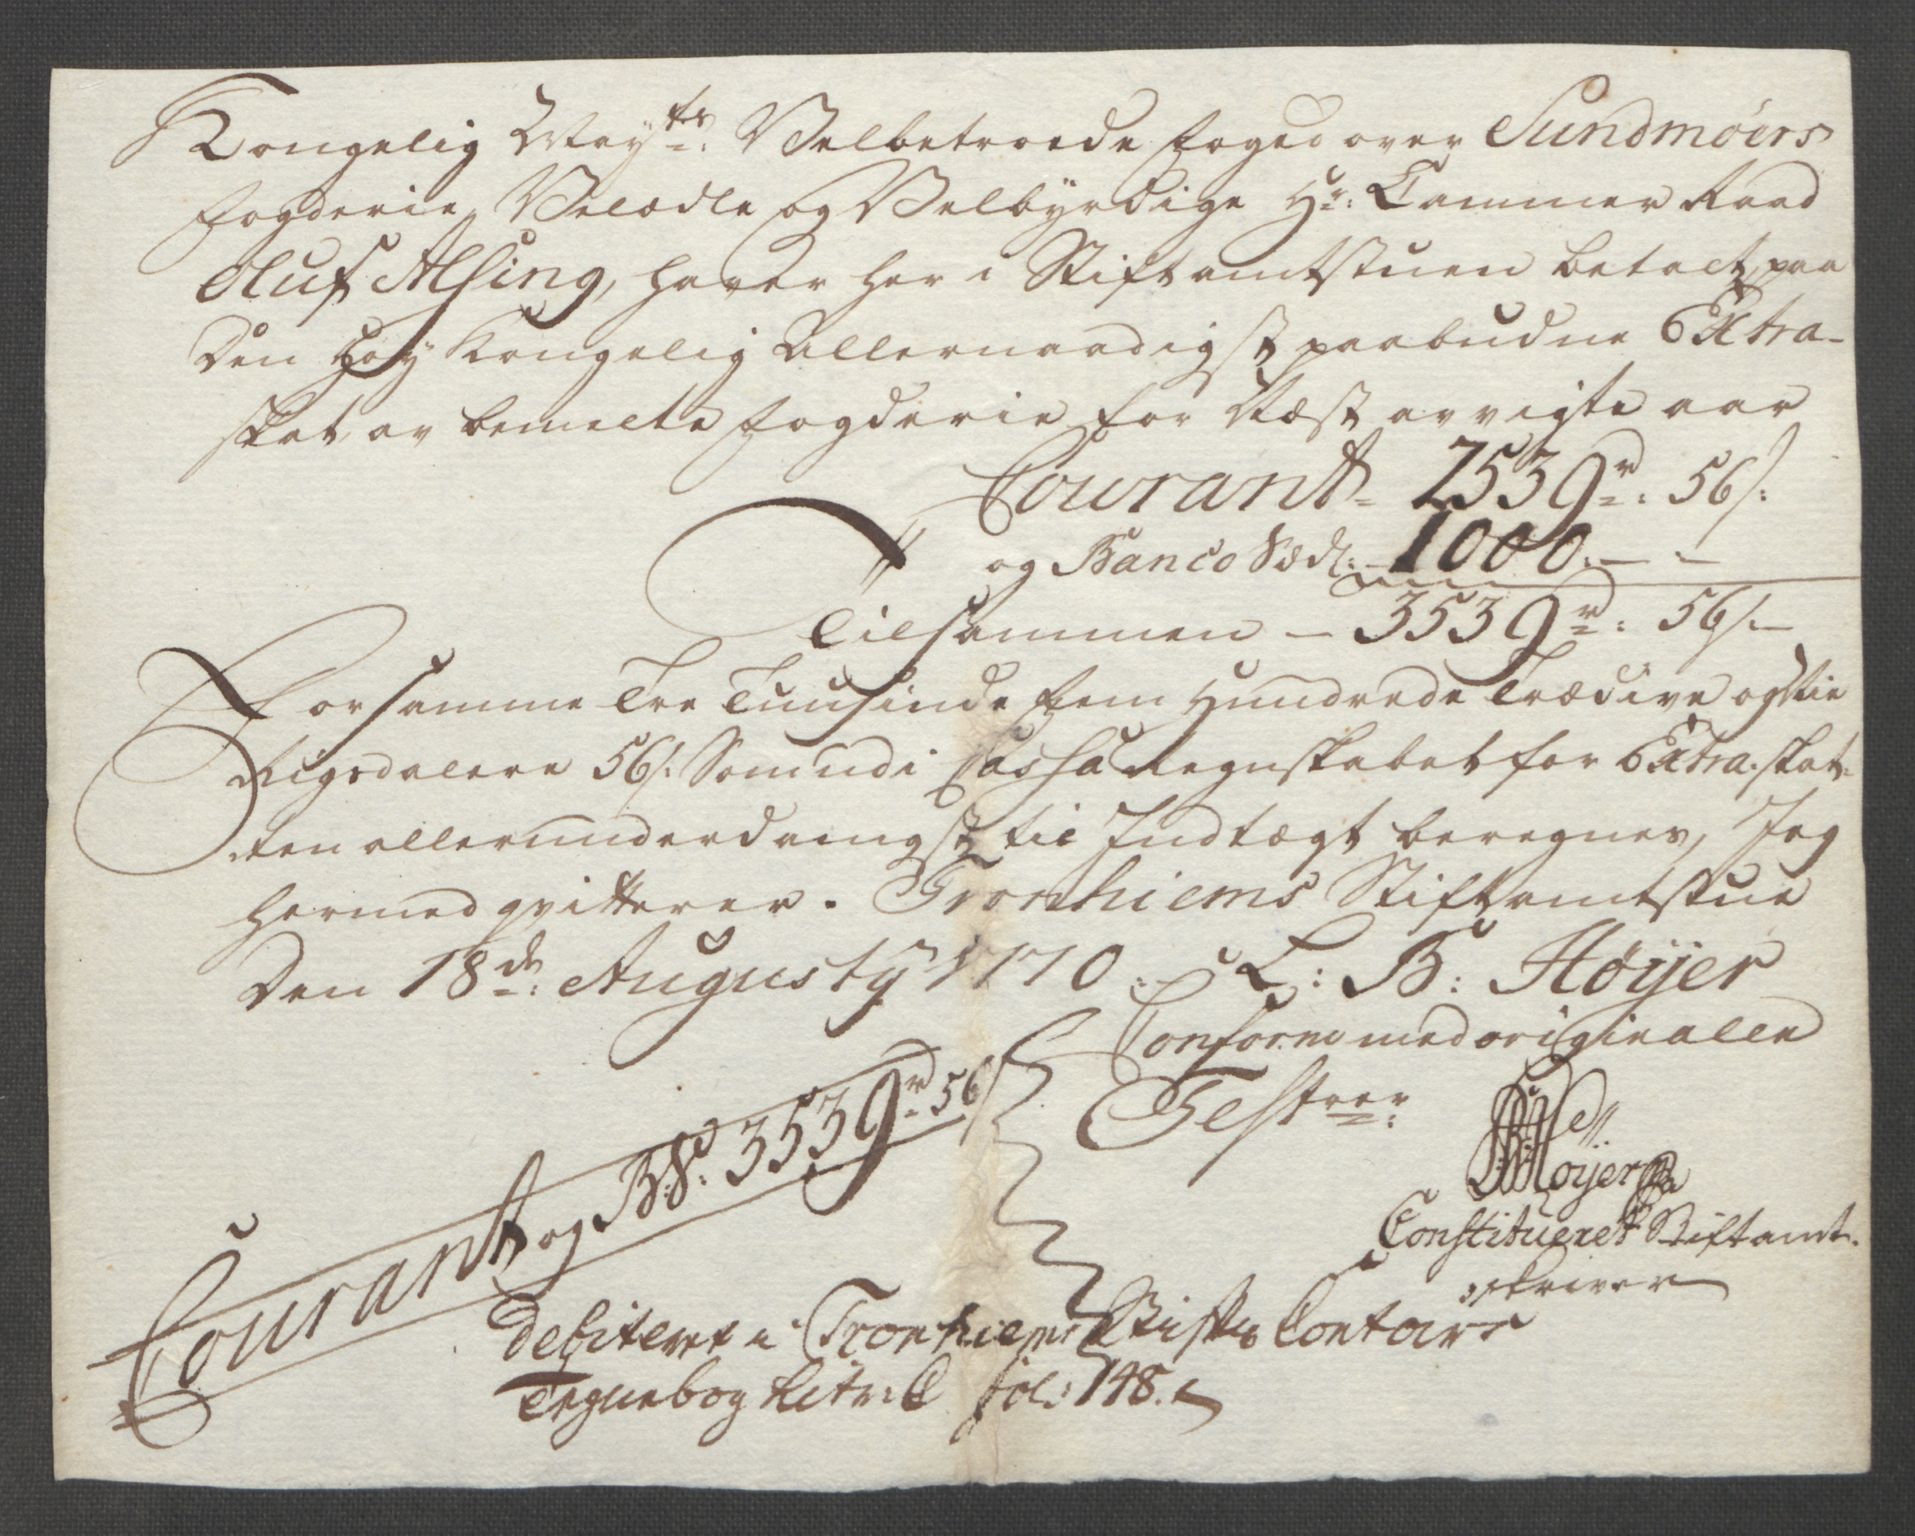 Kongelig May:ts Velbetroede foged over Sundmöers
fogderie, Velædle og Velbyrdige Hr: Cammer Raad
Oluf Alsing, haver her i Stiftamtstuen betalt, paa
Den høy Kongelig Allernaadigst paabudne Extra-
skat, av bemelte fogderie for næst avvigte aar
Courant - 2539 rd: 56 s:
og Banco Sædl: - 1000. - -
Tilsammen - 3539 rd: 56 s. -
For samme Tre Tuusinde fem Hundrede Trædive og Nie
Rigsdalere 56 s: Som udi Cassa Regnskabet for Extra-skat-
ten allerunderdanigst til Indtægt beregnes, Jeg
hermed qvitterer. Tronhiems Stiftamtstue
Den 18de: Augusty 1770. L: B: Höyer
Conform med originalen
Testerer:
Höyer
Constitueret Stiftamt-
skriver
Courant og B: S: 3539 rd 56 s
Debiteret i Tronhiems Stifts Contoirs
Tegnebog Litr: C fol: 148.